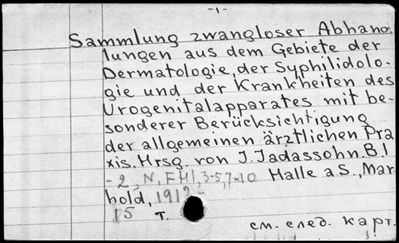 -1-
Sammlung zwangloser Abhand
lungen aus dem Gebiete der
Dermatologie, der Syphilidolo-
gie und der Krankheiten des
Urogenitalapparates mit be-
sonderer Berücksichtigung
der allgemeinen ärztlichen Pra
xis. Hrsg. von J. Jadassohn. B. 1
-2, N. F. H 1, 3-5, 7-10 Halle a S., Mar
hold, 1912
15 т.
см. след. карт.